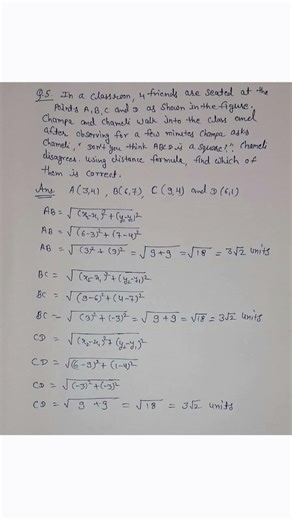 Q.5. In a classroom, 4 friends are seated at the
Points A, B, C and D as shown in the figure.
Champa and Chameli walk into the class and
after observing for a few minutes Champa asks
Chameli, "Don't you think ABCD is a square?". Chameli
disagrees. Using distance formula, find which of
them is correct.
Ans A(3,4), B(6,7), C(9,4) and D(6,1)
AB = √(x₂-x₁)²+(y₂-y₁)²
AB = √(6-3)²+(7-4)²
AB = √(3)²+(3)² = √9+9 = √18 = 3√2 units
BC = √(x₂-x₁)²+(y₂-y₁)²
BC = √(9-6)²+(4-7)²
BC = √(3)²+(-3)² = √9+9 = √18 = 3√2 units
CD = √(x₂-x₁)²+(y₂-y₁)²
CD = √(6-9)²+(1-4)²
CD = √(-3)²+(-3)²
CD = √9+9 = √18 = 3√2 units